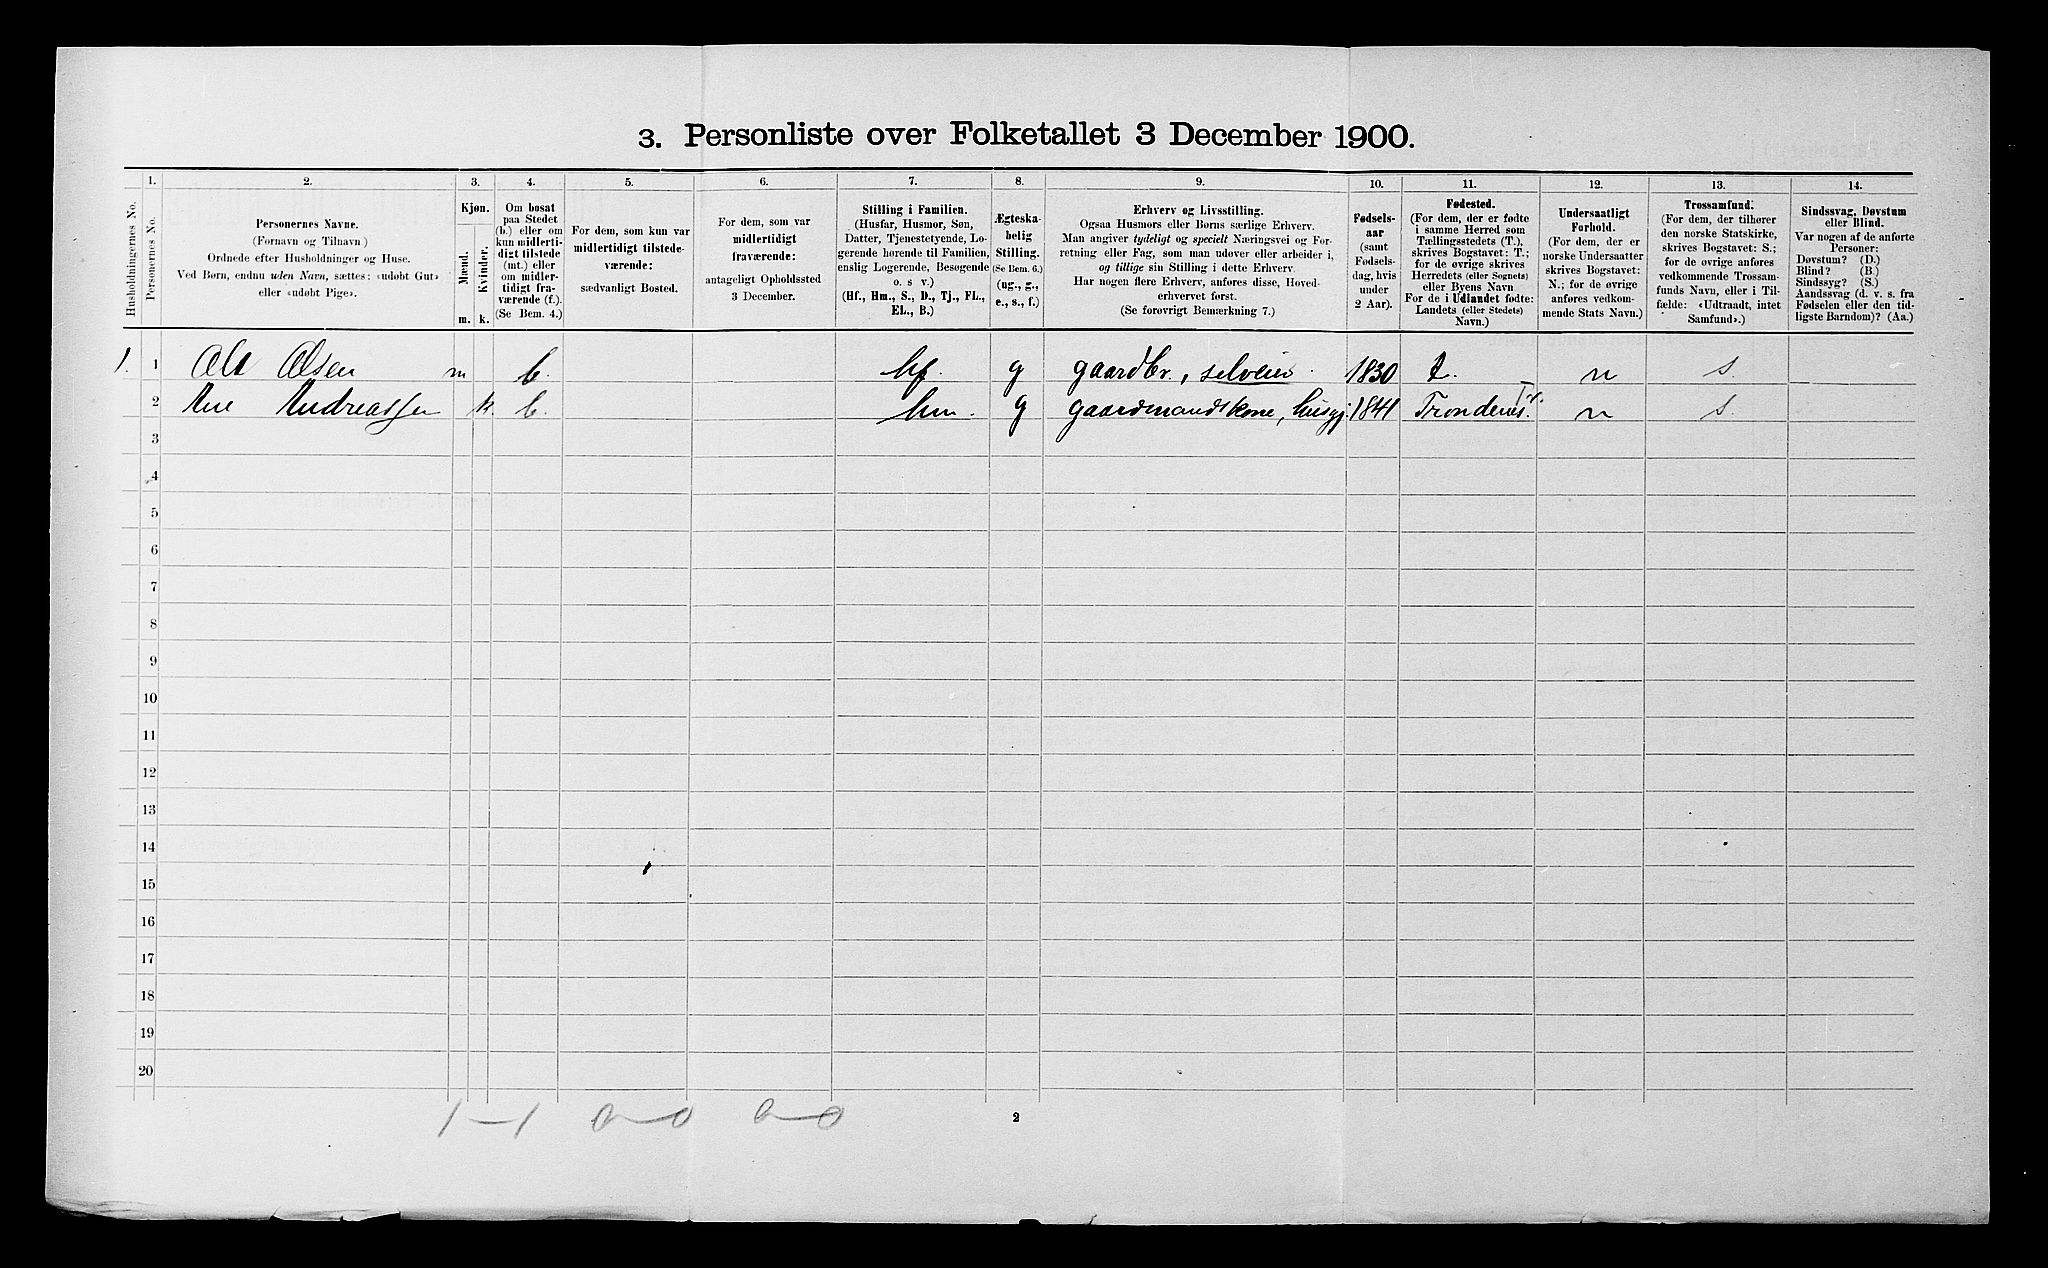 3. Personliste over Folketallet 3 December 1900.
Husholdningernes No.
1.
Personernes No.
2.
Personernes Navne.
(Fornavn og Tilnavn)
Ordnede efter Husholdninger og Huse.
Ved Børn, endnu uden Navn, sættes: «udøbt Gut»
eller «udøbt Pige».
3.
Kjøn.
Mænd.
Kvinder.
m. k.
4.
Om bosat
paa Stedet
(b.) eller om
kun midlerti-
digt tilstede
(mt.) eller
om midler-
tidigt fra-
værende (f.)
(Se Bem. 4.)
5.
For dem, som kun var
midlertidigt tilstede-
værende:
sædvanligt Bosted.
6.
For dem, som var
midlertidigt
fraværende:
antageligt Opholdssted
3 December.
7.
Stilling i Familien.
(Husfar, Husmor, Søn,
Datter, Tjenestetyende, Lo-
gerende hørende til Familien,
enslig Logerende, Besøgende
o. s v.)
(Hf., Hm., S., D., Tj., FL.,
EL., B.)
8.
Ægteska-
belig
Stilling.
(Se Bem. 6.)
(ug., g.,
e., s., f.)
9.
Erhverv og Livsstilling.
Ogsaa Husmors eller Børns særlige Erhverv.
Man angiver tydeligt og specielt Næringsvei og For-
retning eller Fag, som man udøver eller arbeider i,
og tillige sin Stilling i dette Erhverv.
Har nogen flere Erhverv, anføres disse, Hoved-
erhvervet først.
(Se forøvrigt Bemærkning 7.)
10.
Fødsels-
aar
(samt
Fødsels-
dag, hvis
under
2 Aar).
11.
Fødested.
(For dem, der er fødte
i samme Herred som
Tællingsstedets (T.),
skrives Bogstavet: T.;
for de øvrige skrives
Herredets (eller Sognets)
eller Byens Navn
For de i Udlandet fødte:
Landets (eller Stedets)
Navn.)
12.
Undersaatligt
Forhold.
(For dem, der er
norske Undersaatter
skrives Bogstavet:
N.; for de øvrige
anføres vedkom-
mende Stats Navn.)
13.
Trossamfund.
(For dem, der tilhører
den norske Statskirke,
skrives Bogstavet: S.;
for de øvrige anføres
vedkommende Trossam-
funds Navn, eller i Til-
fælde: «Udtraadt, intet
Samfund».)
14.
Sindssvag, Døvstum
eller Blind.
Var nogen af de anførte
Personer:
Døvstum? (D.)
Blind? (B.)
Sindssyg? (S.)
Aandssvag (d. v. s. fra
Fødselen eller den tid-
ligste Barndom)? (Aa.)
1. 1 Ole Olsen m b. hf. g gaardbr., selveier. 1830 t. n s.
2 Ane Andreassen k. b. hm. g gaardmandskone, husgj. 1841 Trondenæs n s.
3
4
5
6
7
8
9
10
11
12
13
14
15
16
17
18
19
20
1-1 0-0 0-0
2